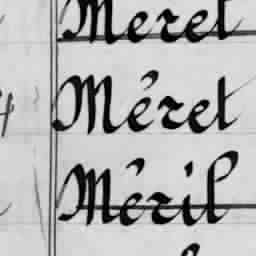 Méret
Méret
Méril